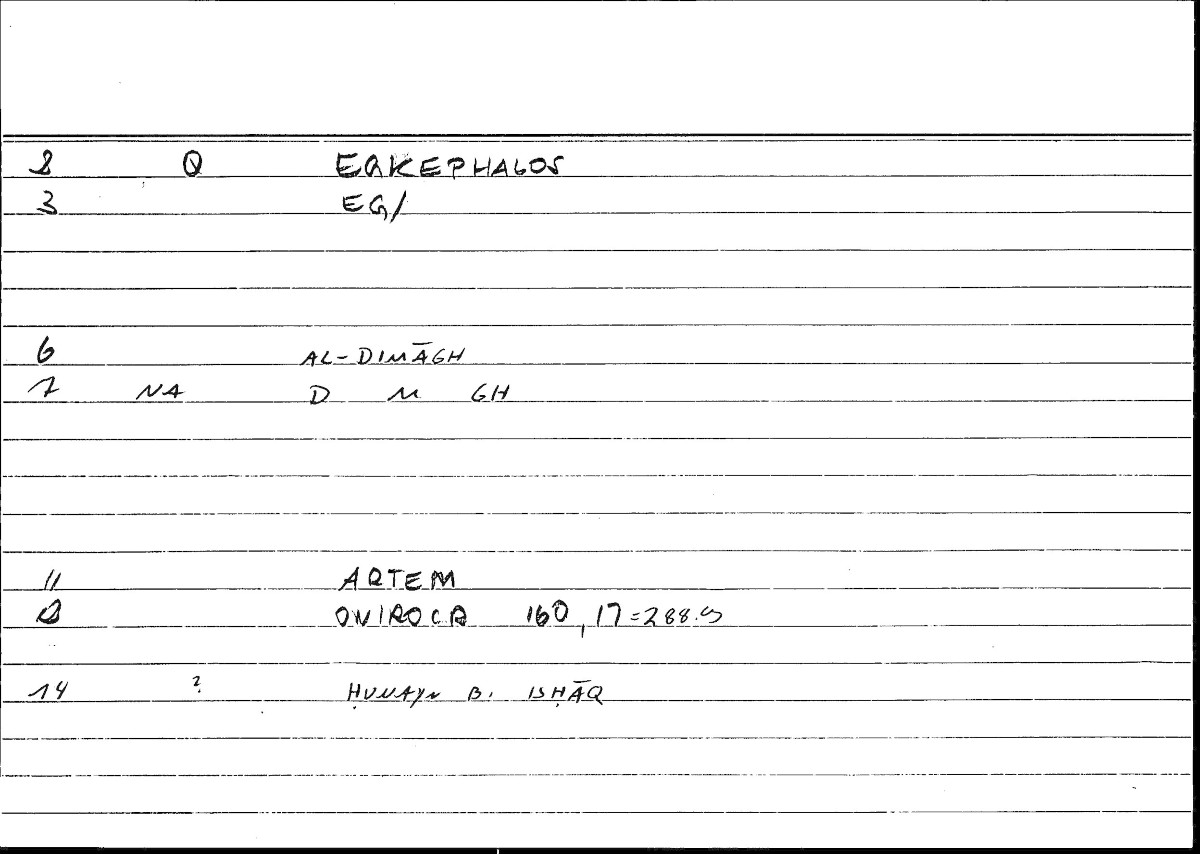 2 Q EGKEPHALOS
3 EG/
6 AL-DIMĀGH
7 NA D M GH
11 ARTEM
ONIROCR 160,17=288.9
14 ? ḤUNAYN B. ISḤĀQ